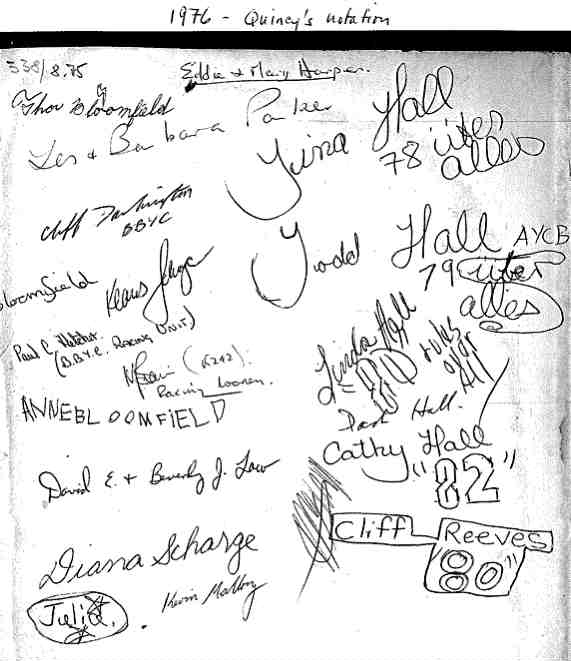 1976 - Quincy's notation
538/8.75
Eddie & Mary Harper.
Thor Bloomfield
Les & Barbara Parker
Tina Hall
78 über
alles
Cliff Darlington
BBYC
Todd Hall AYCB
79 über
alles
Bloomfield
Klaus
Paul C.
(B.B.Y.C. Racing Unit)
Linda Hall
80 rules
over
All
(6242).
Racing
ANNE BLOOMFIELD
Dave Hall.
Cathy Hall
"82"
David E. & Beverly J. Law
Cliff Reeves
"80"
Diana Scharge
Kevin Mallory
Julia.